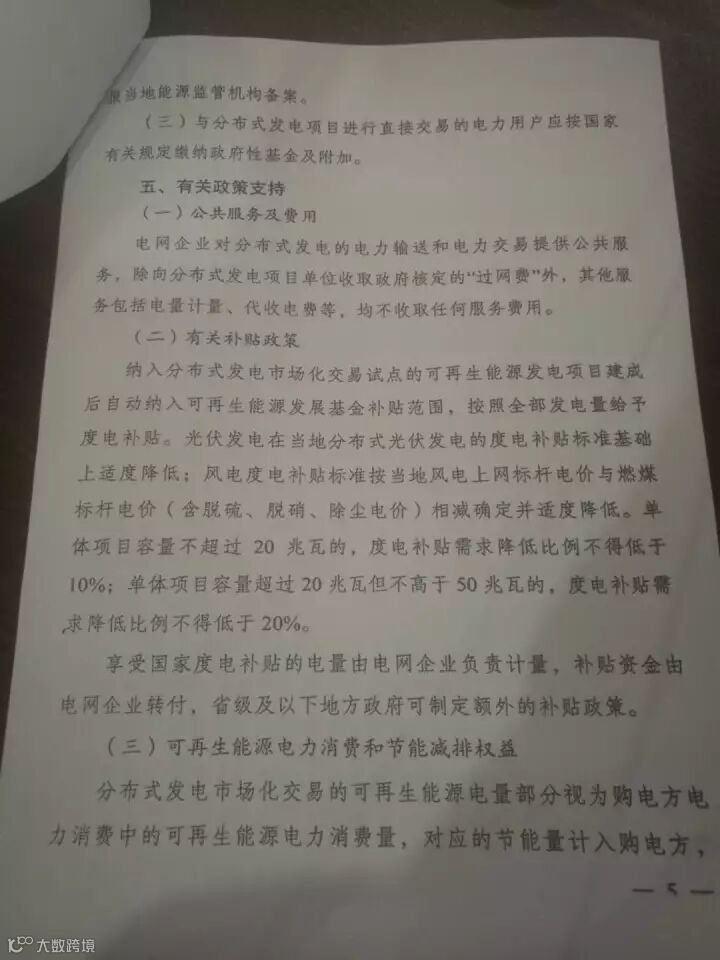 报当地能源监管机构备案。
（三）与分布式发电项目进行直接交易的电力用户应按国家
有关规定缴纳政府性基金及附加。
五、有关政策支持
（一）公共服务及费用
电网企业对分布式发电的电力输送和电力交易提供公共服
务，除向分布式发电项目单位收取政府核定的“过网费”外，其他服
务包括电量计量、代收电费等，均不收取任何服务费用。
（二）有关补贴政策
纳入分布式发电市场化交易试点的可再生能源发电项目建成
后自动纳入可再生能源发展基金补贴范围，按照全部发电量给予
度电补贴。光伏发电在当地分布式光伏发电的度电补贴标准基础
上适度降低；风电度电补贴标准按当地风电上网标杆电价与燃煤
标杆电价（含脱硫、脱硝、除尘电价）相减确定并适度降低。单
体项目容量不超过 20 兆瓦的，度电补贴需求降低比例不得低于
10%；单体项目容量超过 20 兆瓦但不高于 50 兆瓦的，度电补贴需
求降低比例不得低于 20%。
享受国家度电补贴的电量由电网企业负责计量，补贴资金由
电网企业转付，省级及以下地方政府可制定额外的补贴政策。
（三）可再生能源电力消费和节能减排权益
分布式发电市场化交易的可再生能源电量部分视为购电方电
力消费中的可再生能源电力消费量，对应的节能量计入购电方，
— 5 —
大数跨境